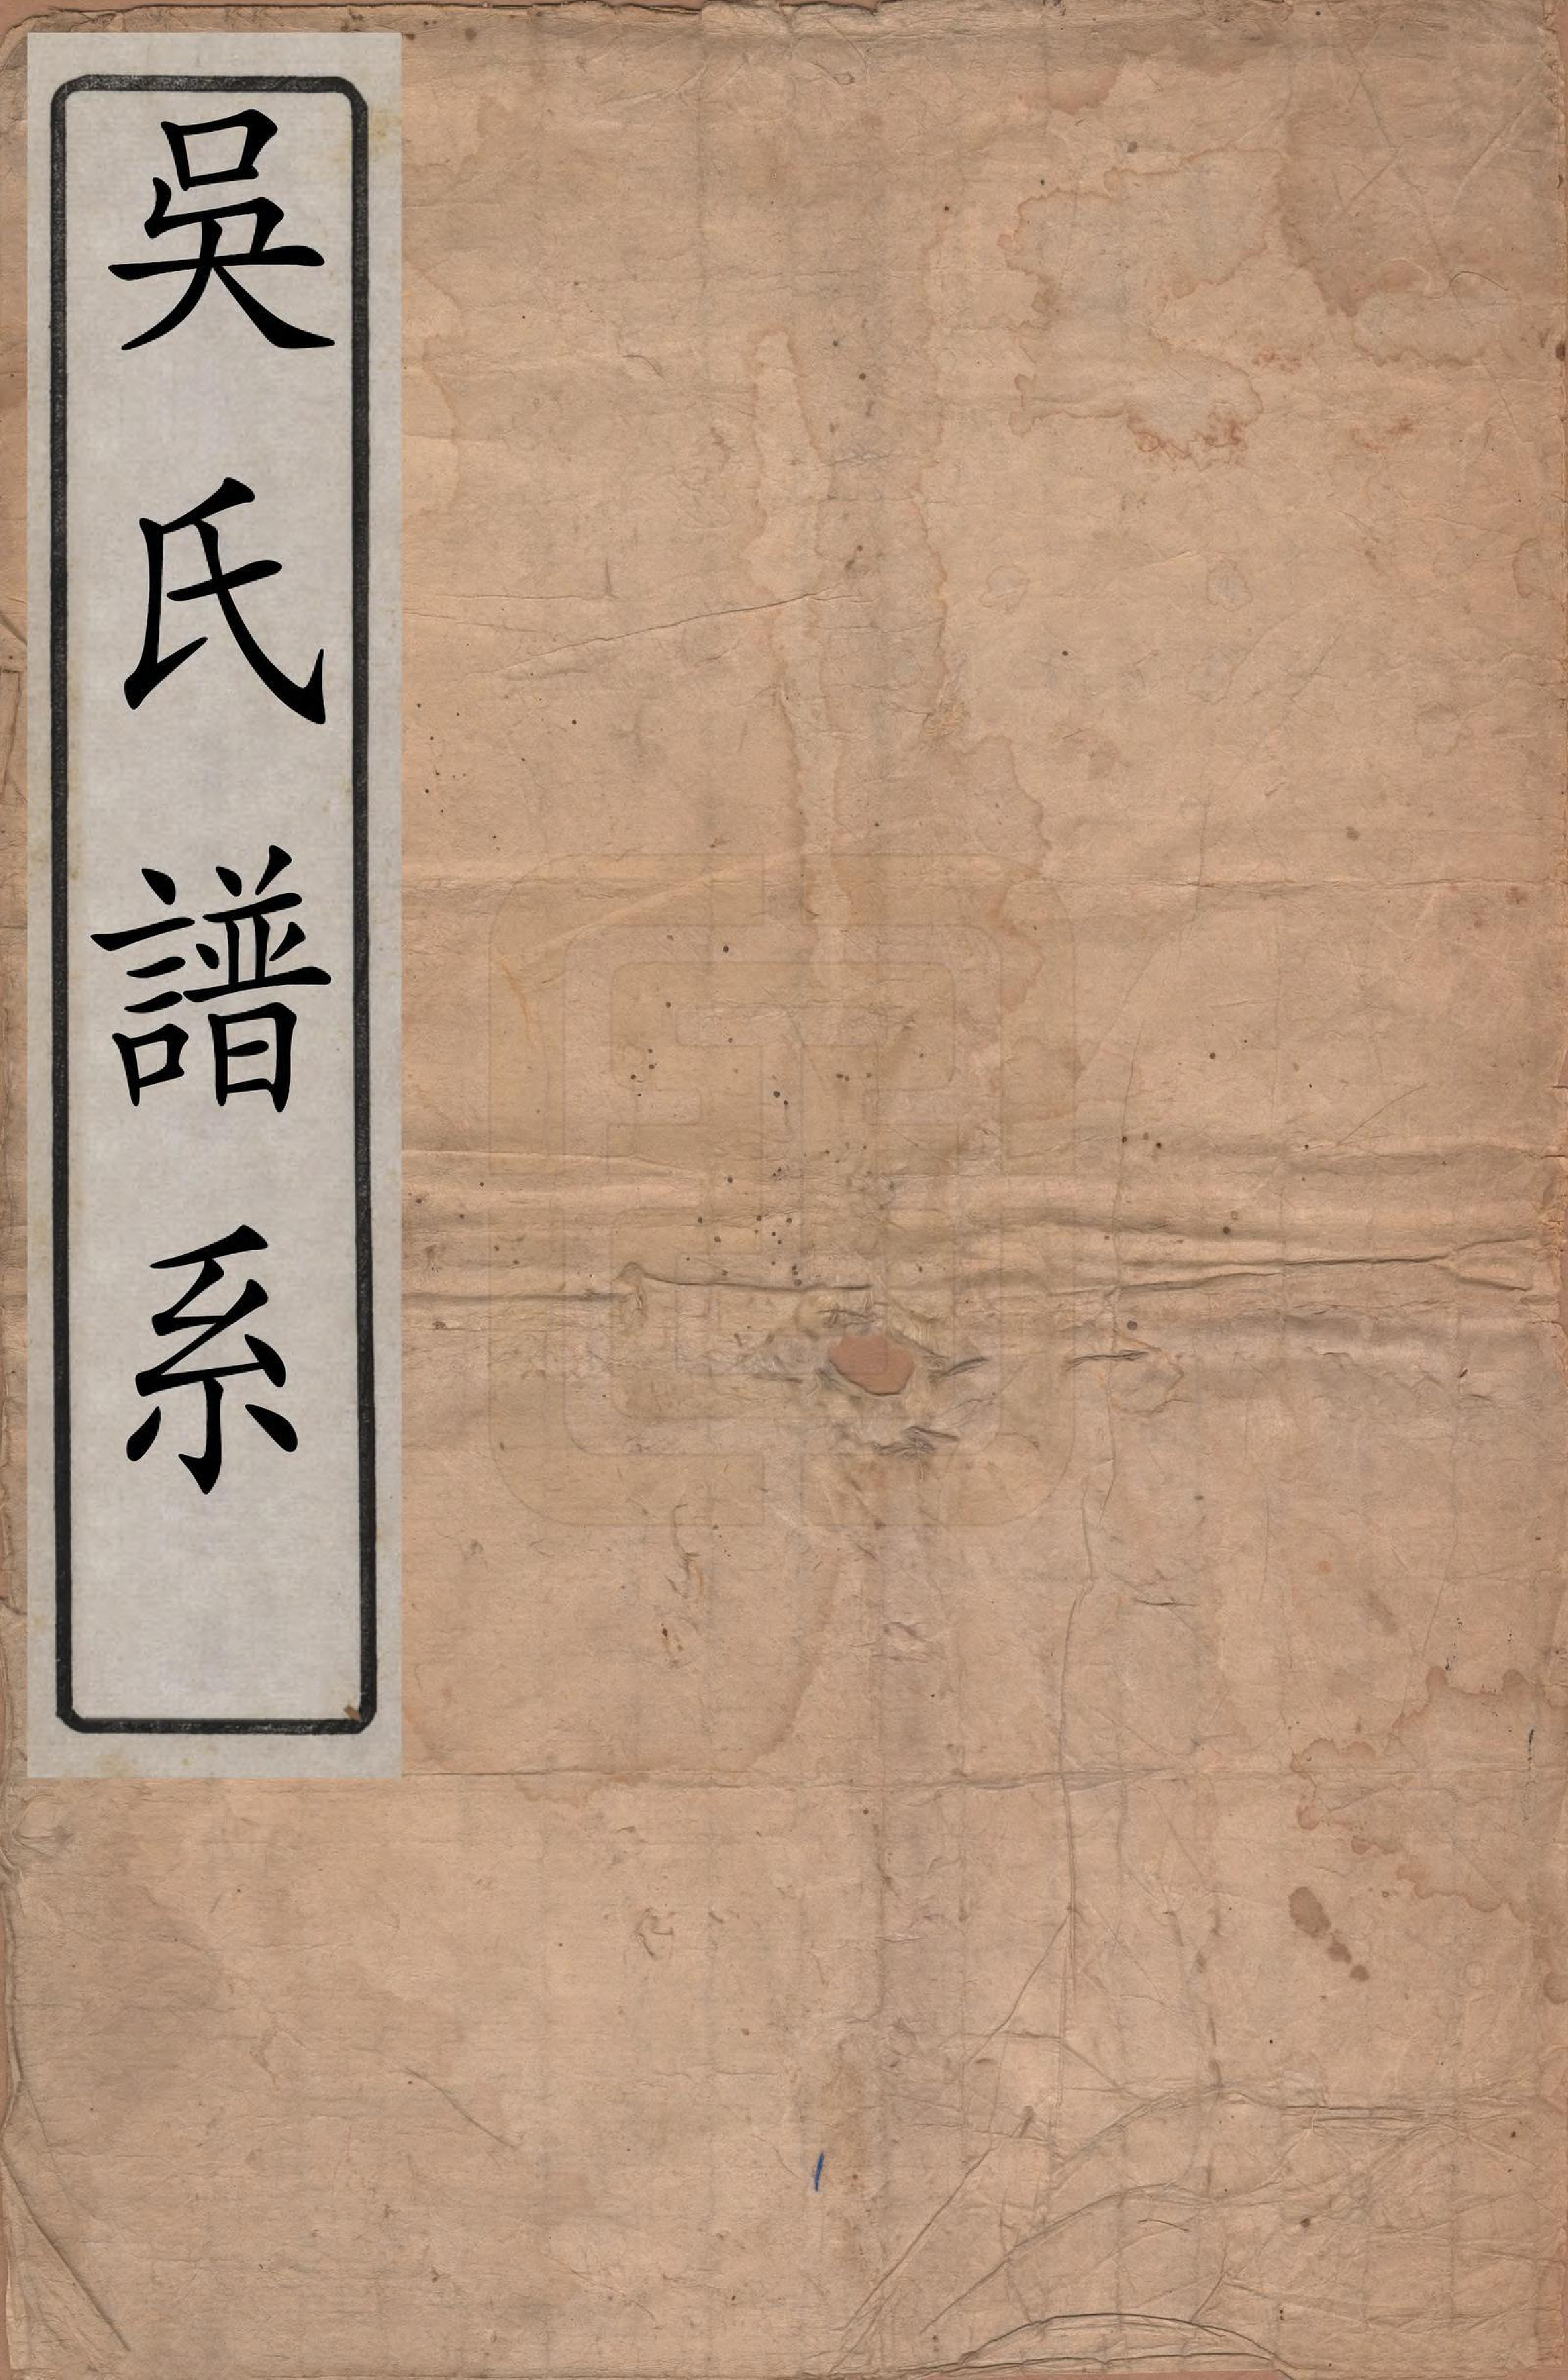 吳氏譜系